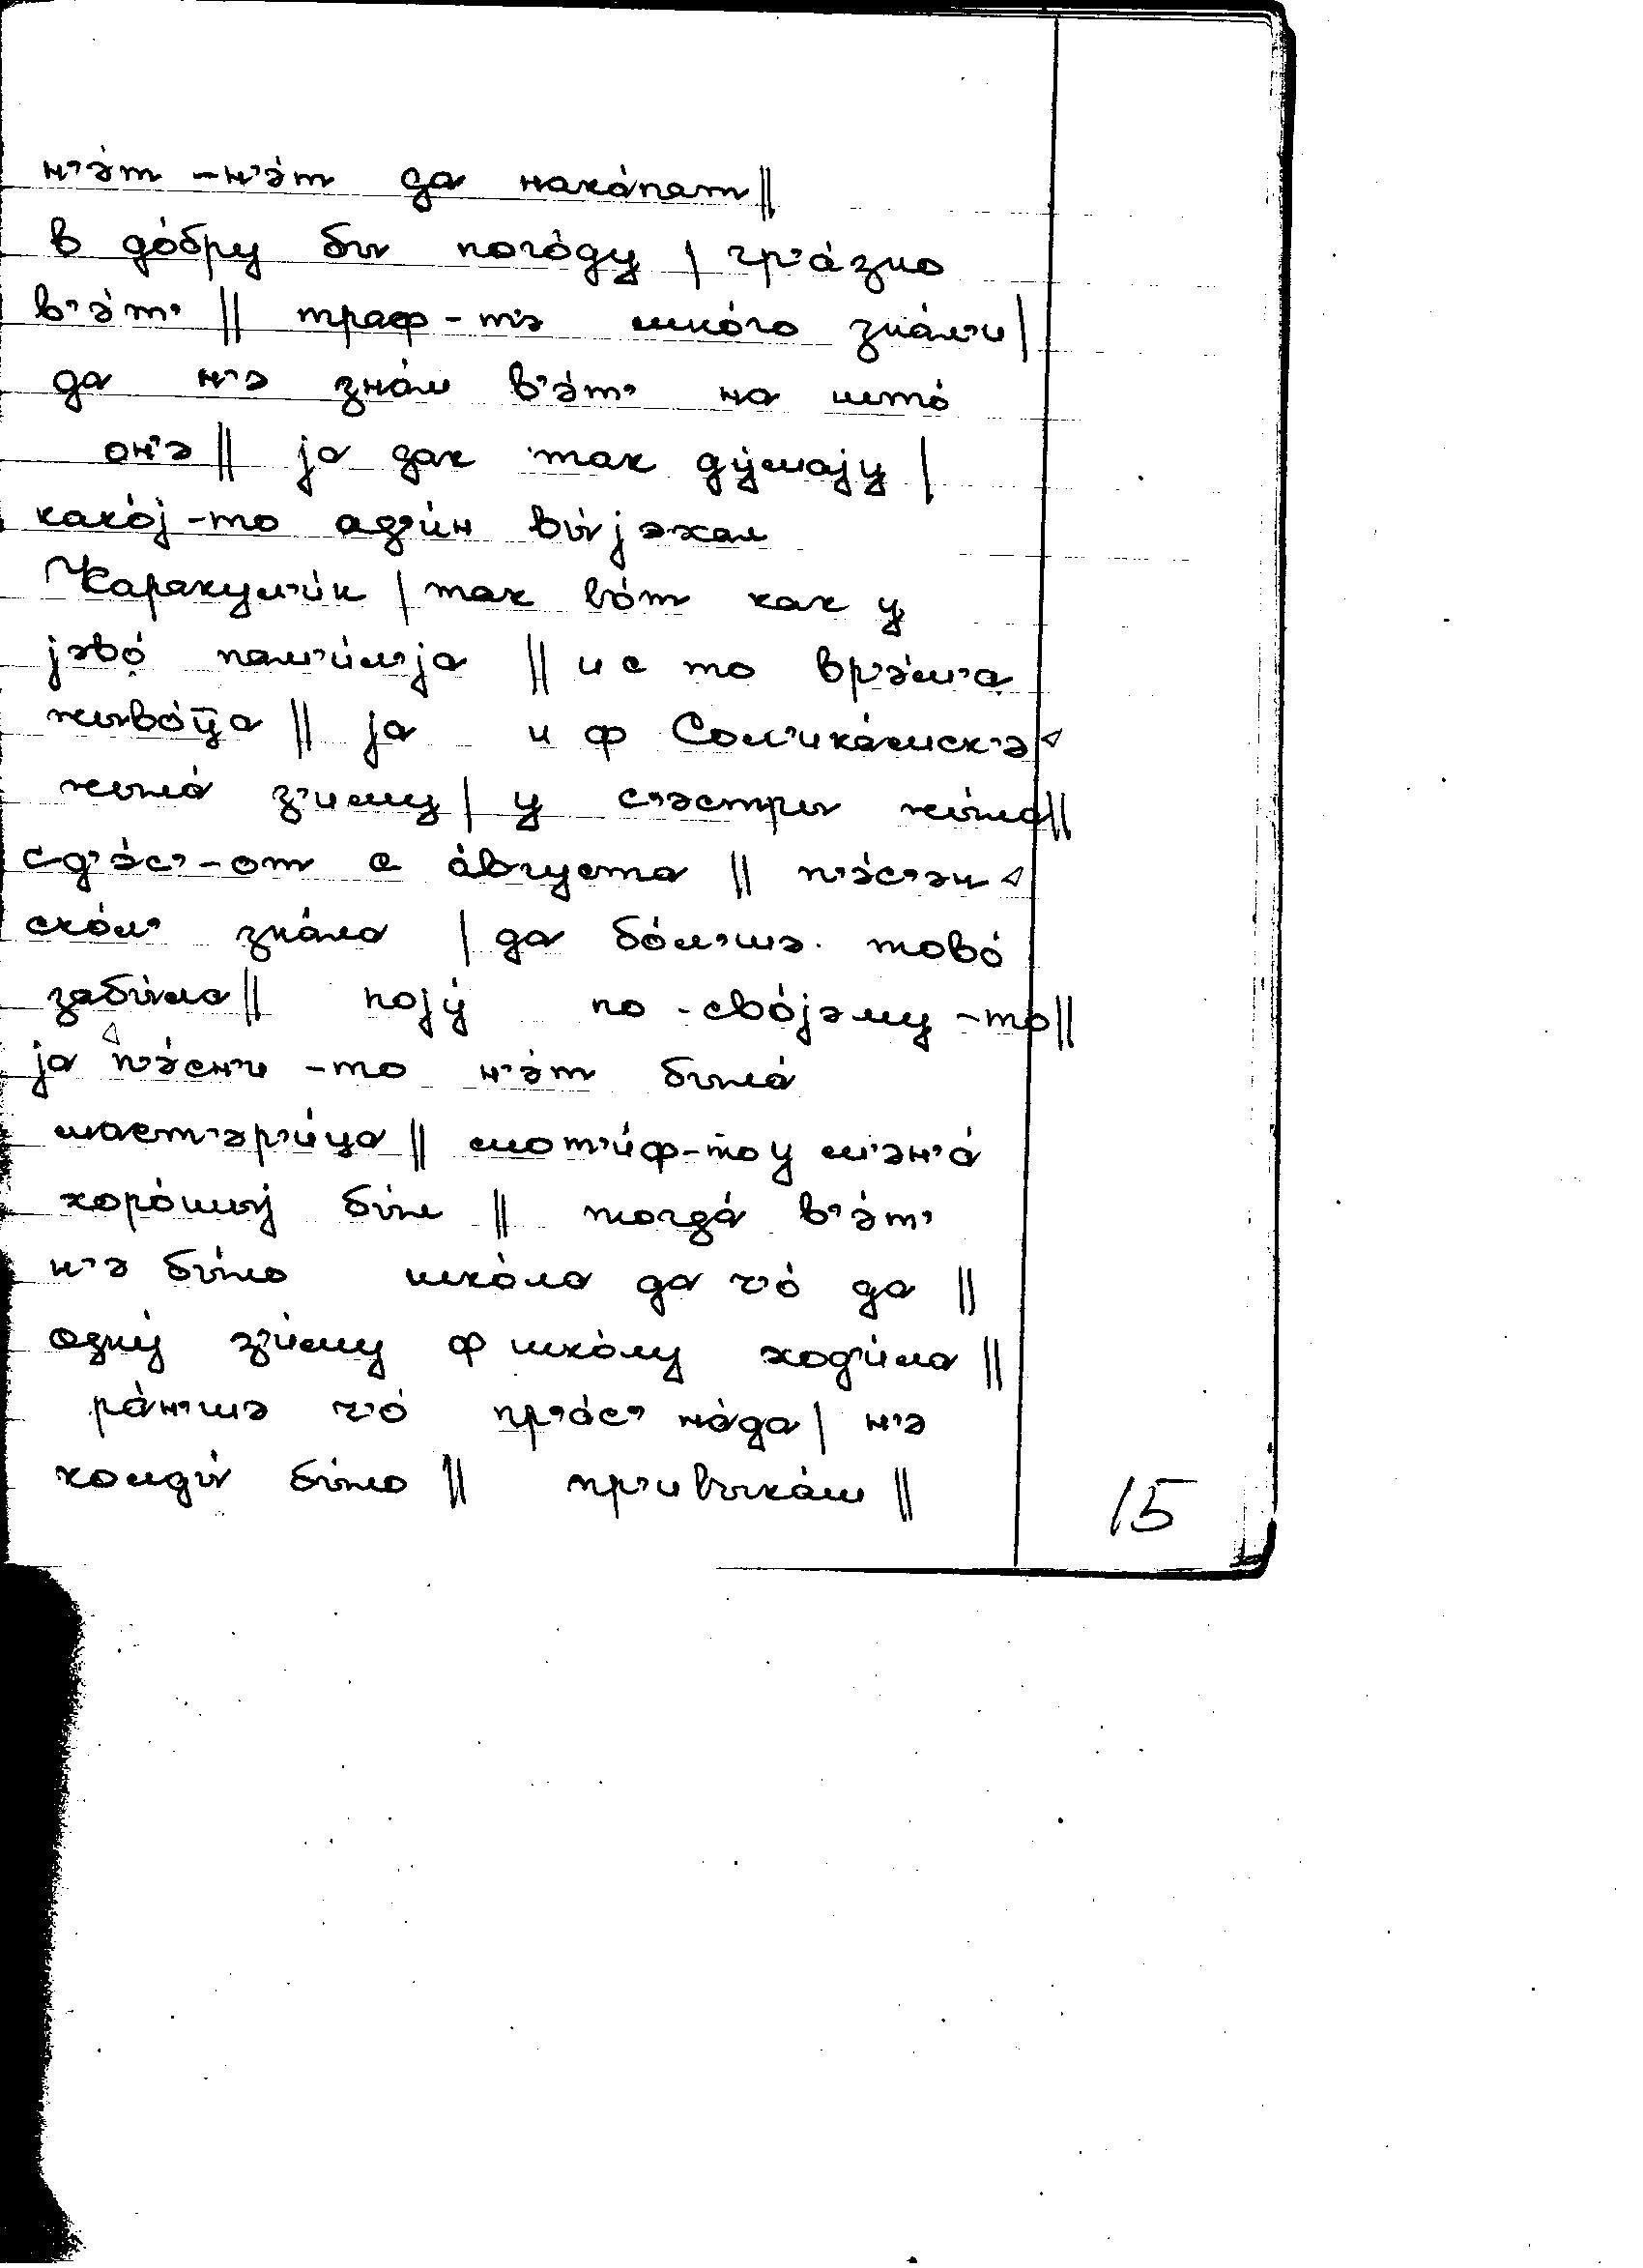 н'э́т -н'э́т да нака́пат ||
в до́бру бы пого́ду | гр'а́зно
в'э́т' || траф-т'э мно́го зна́л'и |
да н'э зна́м в'э́т' на што́
он'э || jа дак так ду́маjу |
како́j-то ад'и́н вы́jэхал
Каракул'и́н | так во́т как у
jэво́ фам'и́л'jа || и с то вр'э́м'а
жыво́ца || jа и ф Сол'ика́мск'э
жыла́ з'иму | у с'эстры жы́ла ||
сд'э́с'-от с а́вгуста || п'э́с'эн
ско́л' зна́ла | да бо́л'шэ тово́
забы́ла || поjу́ по-сво́jэму-то ||
jа п'э́сн'и -то н'э́т была́
маст'эр'и́ца || мот'и́ф-то у м'эн'а́
хоро́шыj бы́л || тогда́ в'э́т'
н'э бы́ло шко́ла да ч'о́ да ||
одну́ з'и́му ф шко́лу ход'и́ла ||
ра́н'шэ ч'о́ пр'а́с' на́да | н'э
колды́ бы́ло || пр'ивыка́ш ||
15